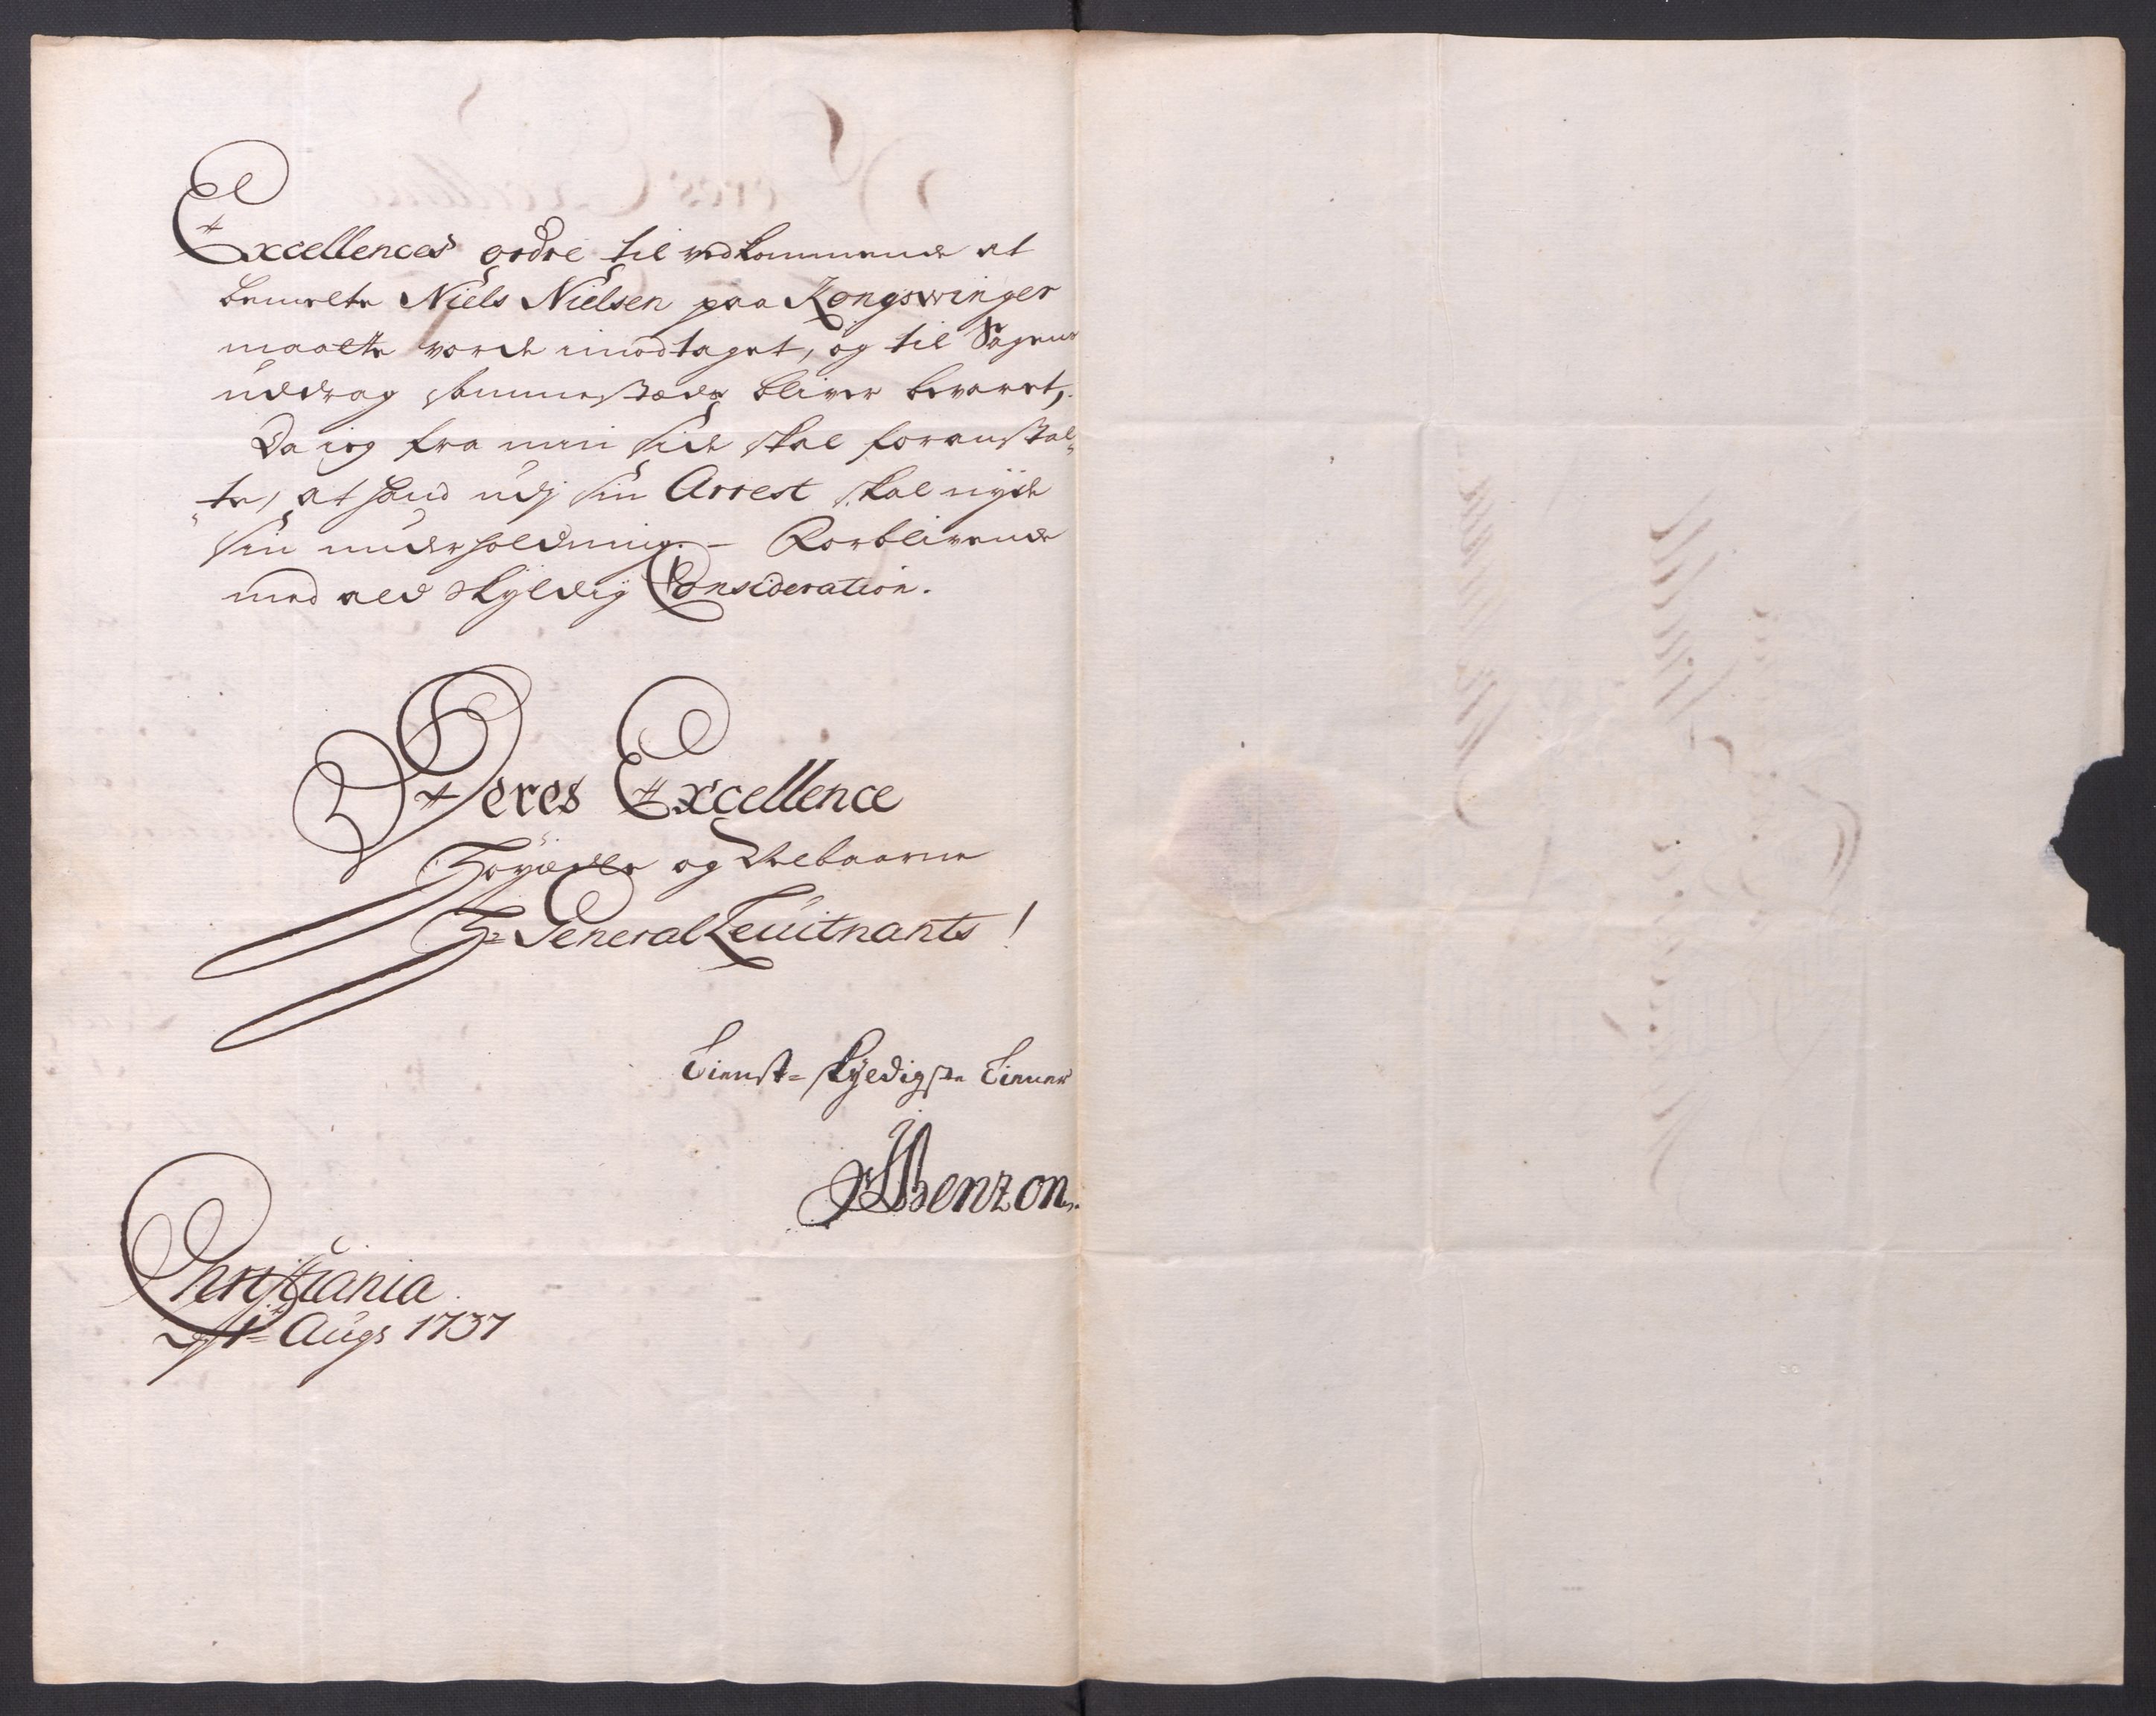 Excellences ordre til vedkommende at
bemelte Niels Nielsen paa Kongswinger
maatte worde imodtaget, og til Sagens
uddrag sammestædz bliver bevaret,
Da ieg fra min side skal foranstal¬
¬te, at hand udj sin Arrest skal nyde
sin underholdning. – Forblivende
med ald skyldig Consideration.
Deres Excellence
Höyædle og Velbaarne
H= General Leuitnants!
Tienst=skyldigste Tiener
JBenzon.
Christiania
d 1= Augs 1737